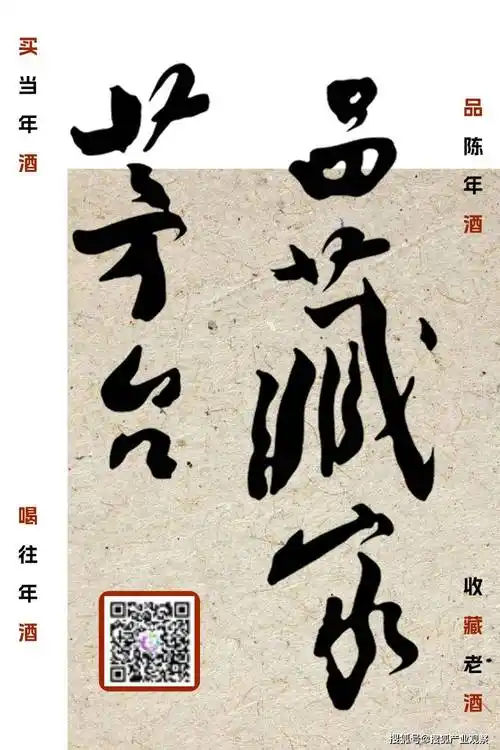 品陈年酒
收藏老酒
品藏家
茅台
买当年酒
喝往年酒
搜狐号@搜狐产业观察